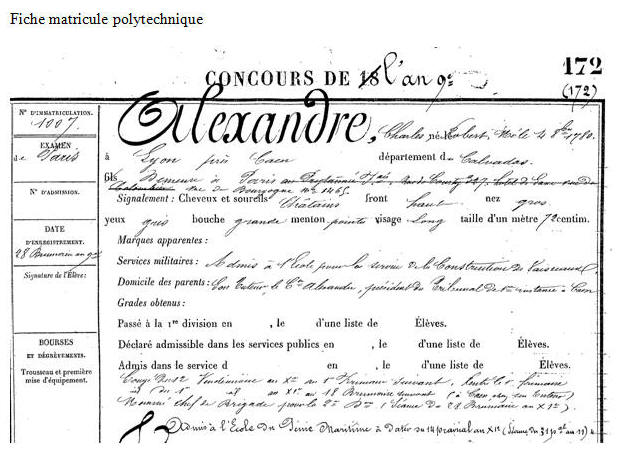 Fiche matricule polytechnique
CONCOURS DE 18 l'an 9e
172
(172)
N° D'IMMATRICULATION.
1007.
EXAMEN
de Paris
N° D'ADMISSION.
DATE
D'ENREGISTREMENT.
28 Brumaire an 9
Signature de l'Élève:
BOURSES
ET DÉGRÈVEMENTS.
Trousseau et première
mise d'équipement.
Alexandre, Charles Robert, né le 4 8bre 1780.
à Lyon près Caen département du Calvados.
fils Demeure à Paris au
rue de Bourgogne no 1465.
Signalement: Cheveux et sourcils Châtains front haut nez gros
yeux gris bouche grande menton pointu visage long taille d'un mètre 72 centim.
Marques apparentes:
Services militaires: Admis à l'Ecole pour le service de la Construction de Vaisseaux
Domicile des parents: Son tuteur le Cen Alexandre, président du Tribunal de 1ere instance à Caen
Grades obtenus:
Passé à la 1re division en , le d'une liste de Élèves.
Déclaré admissible dans les services publics en , le d'une liste de Élèves.
Admis dans le service d en , le d'une liste de Élèves.
Congé du 12 Vendemiaire an XI au 1er Brumaire suivant,
an XI au 18 Brumaire suivant (à Caen chez son tuteur)
Nommé chef de Brigade pour la 2e (Séance du 28 Brumaire an XI).
Admis à l'Ecole du Génie Maritime à dater du 14 prairial an XI